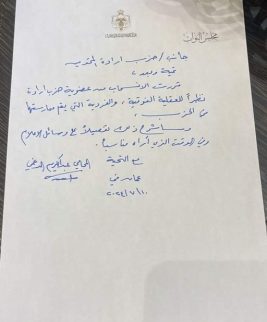 مجلس النواب
جانب / حزب ارادة المحترمين
تحية وبعد ،
قررت الانسحاب من عضوية حزب ارادة
نظراً للعقلية الفوقية ، والفردية التي يتم ممارستها
في الحزب .
وسأشرح ذلك تفصيلاً مع وسائل الاعلام
وفي الوقت الذي أراه مناسباً .
مع التحية
المحامي عبدالكريم الدغمي
عمان في
٢٠٢٤/٧/١٠